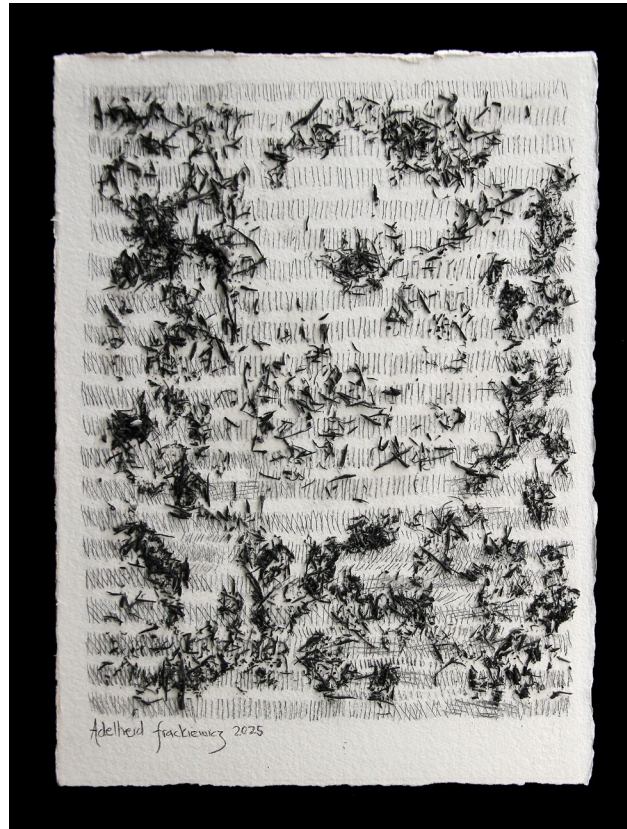 Adelheid frackiewicz 2025